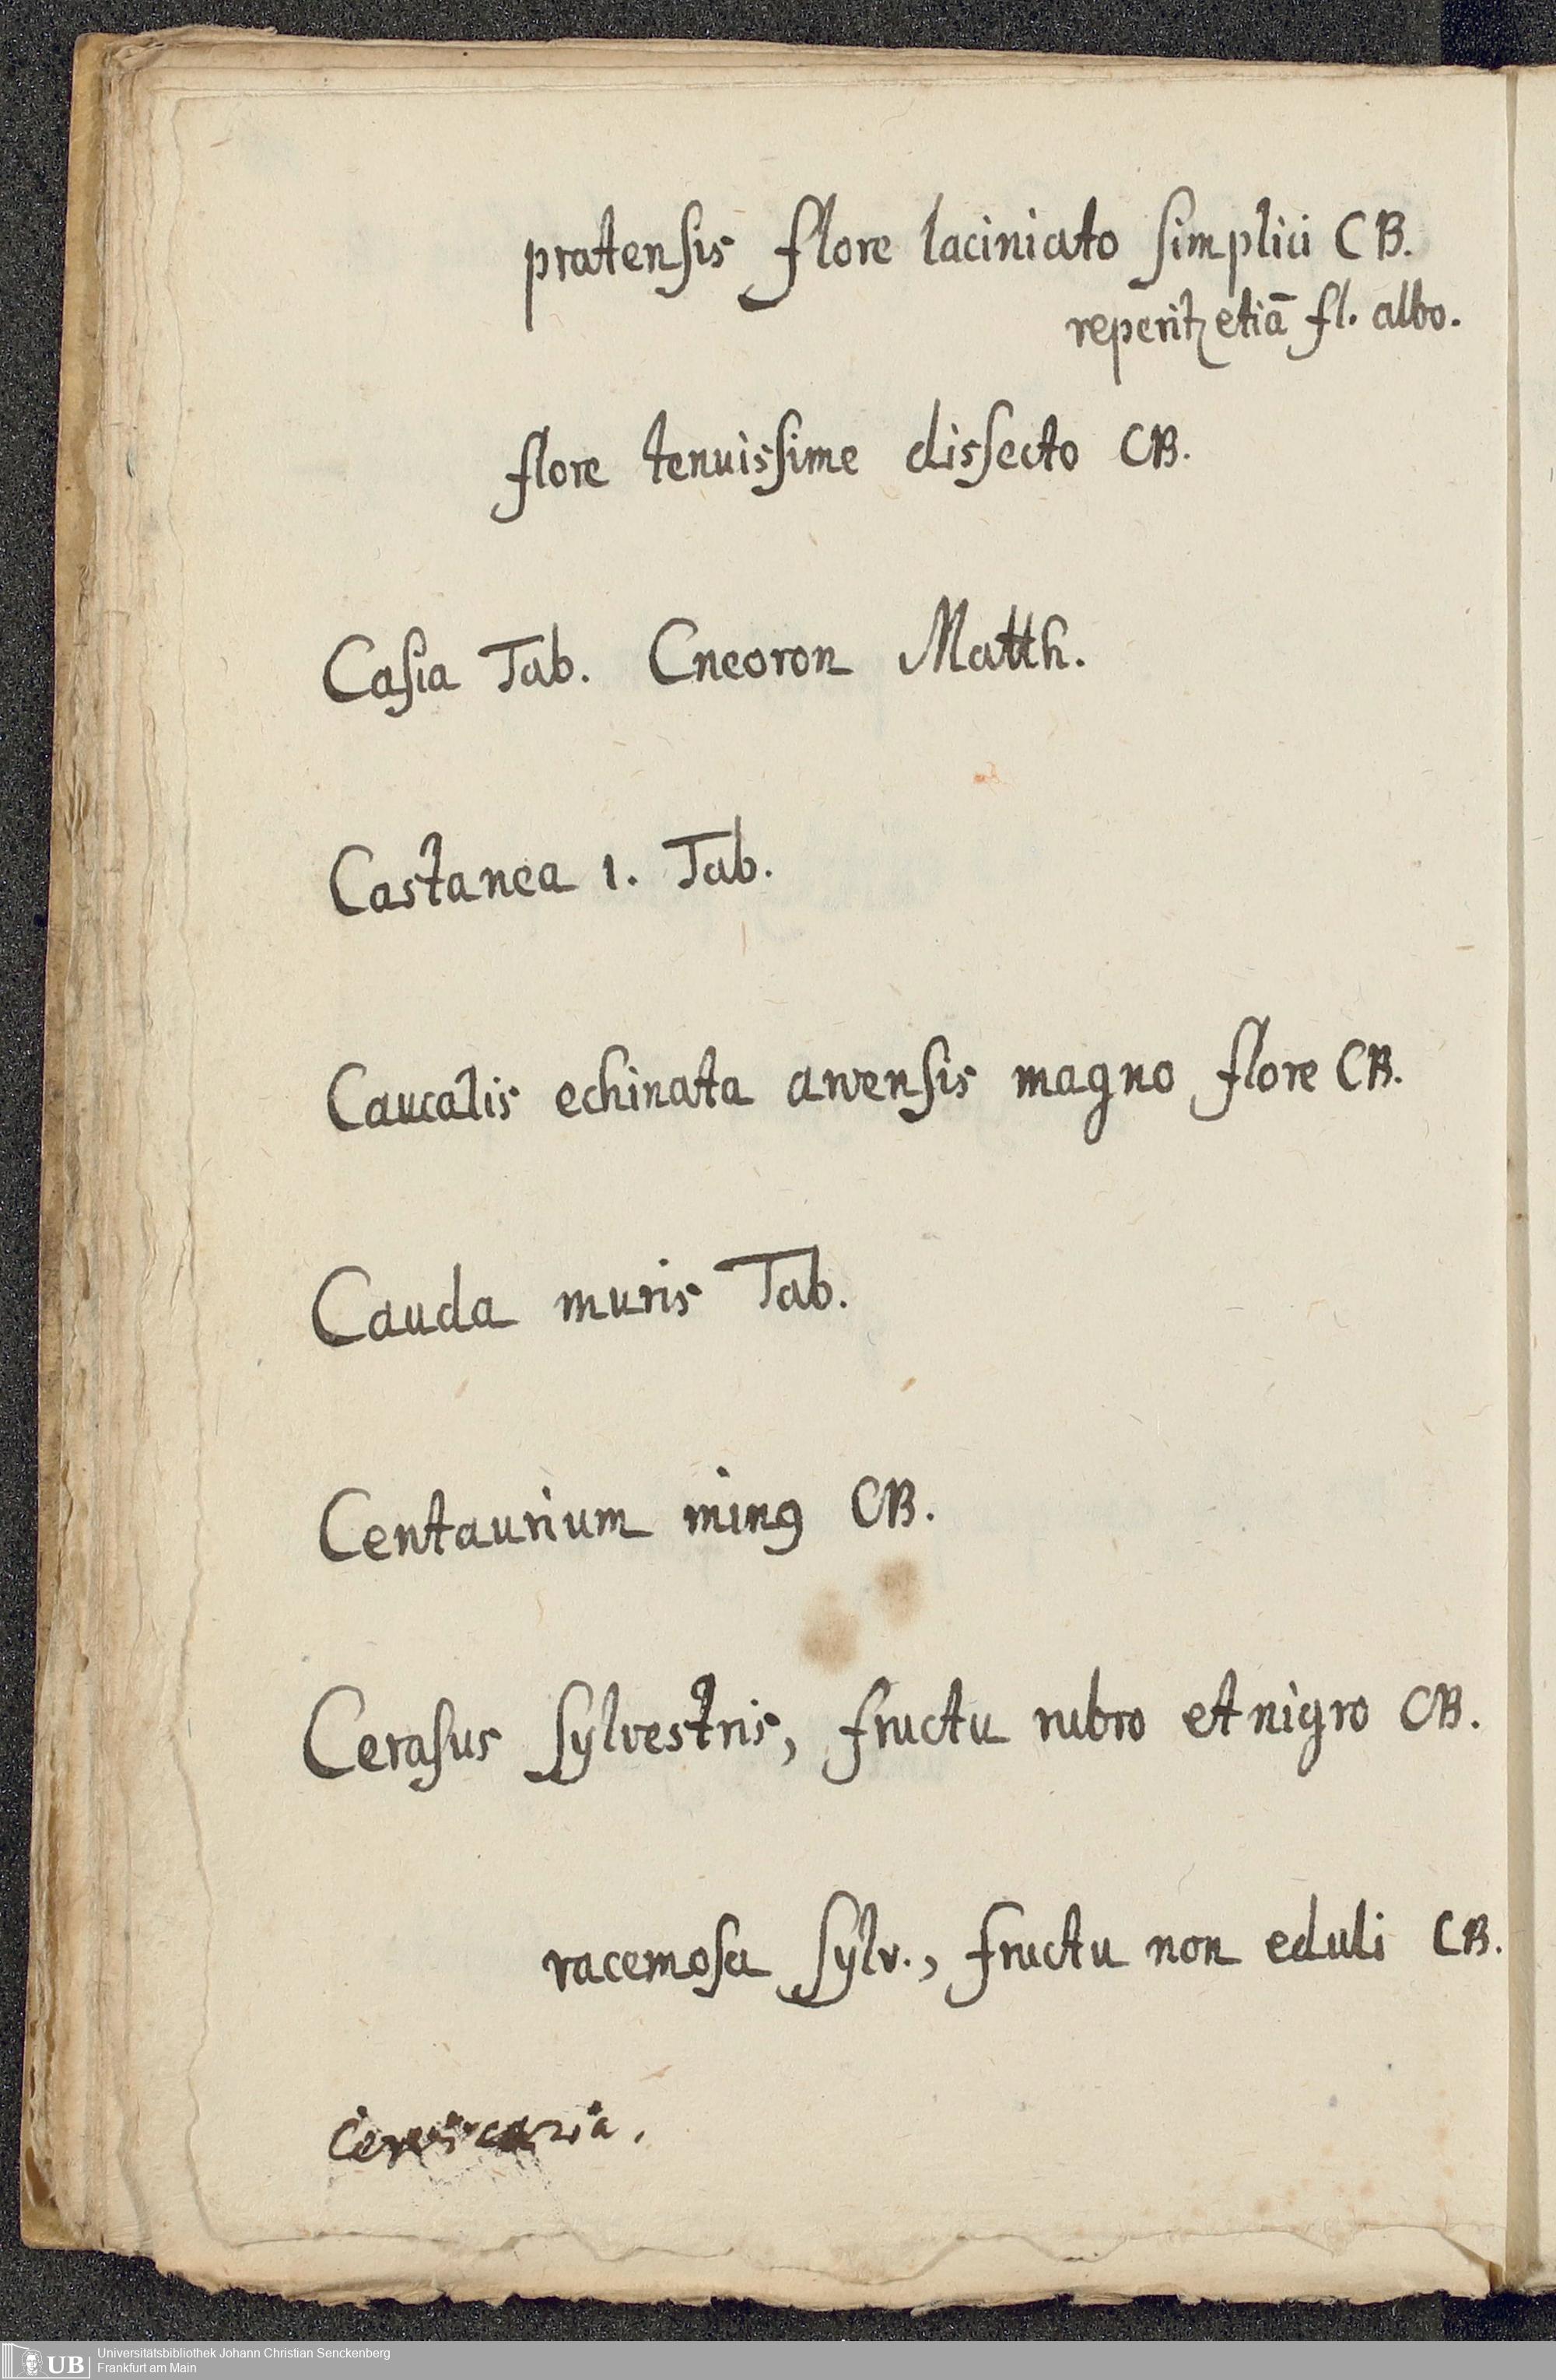 pratensis flore laciniato simplici CB.
reperitꝛ etiā fl. albo.
flore tenuissime dissecto CB.
Casia Tab. Cneoron Matth.
Castanea 1. Tab.
Caucalis echinata arvensis magno flore CB.
Cauda muris Tab.
Centaurium minꝰ CB.
Cerasus sylvestris, fructu rubro et nigro CB.
racemosa sylv., fructu non eduli CB.
Cervicaria.
UB Universitätsbibliothek Johann Christian Senckenberg
Frankfurt am Main